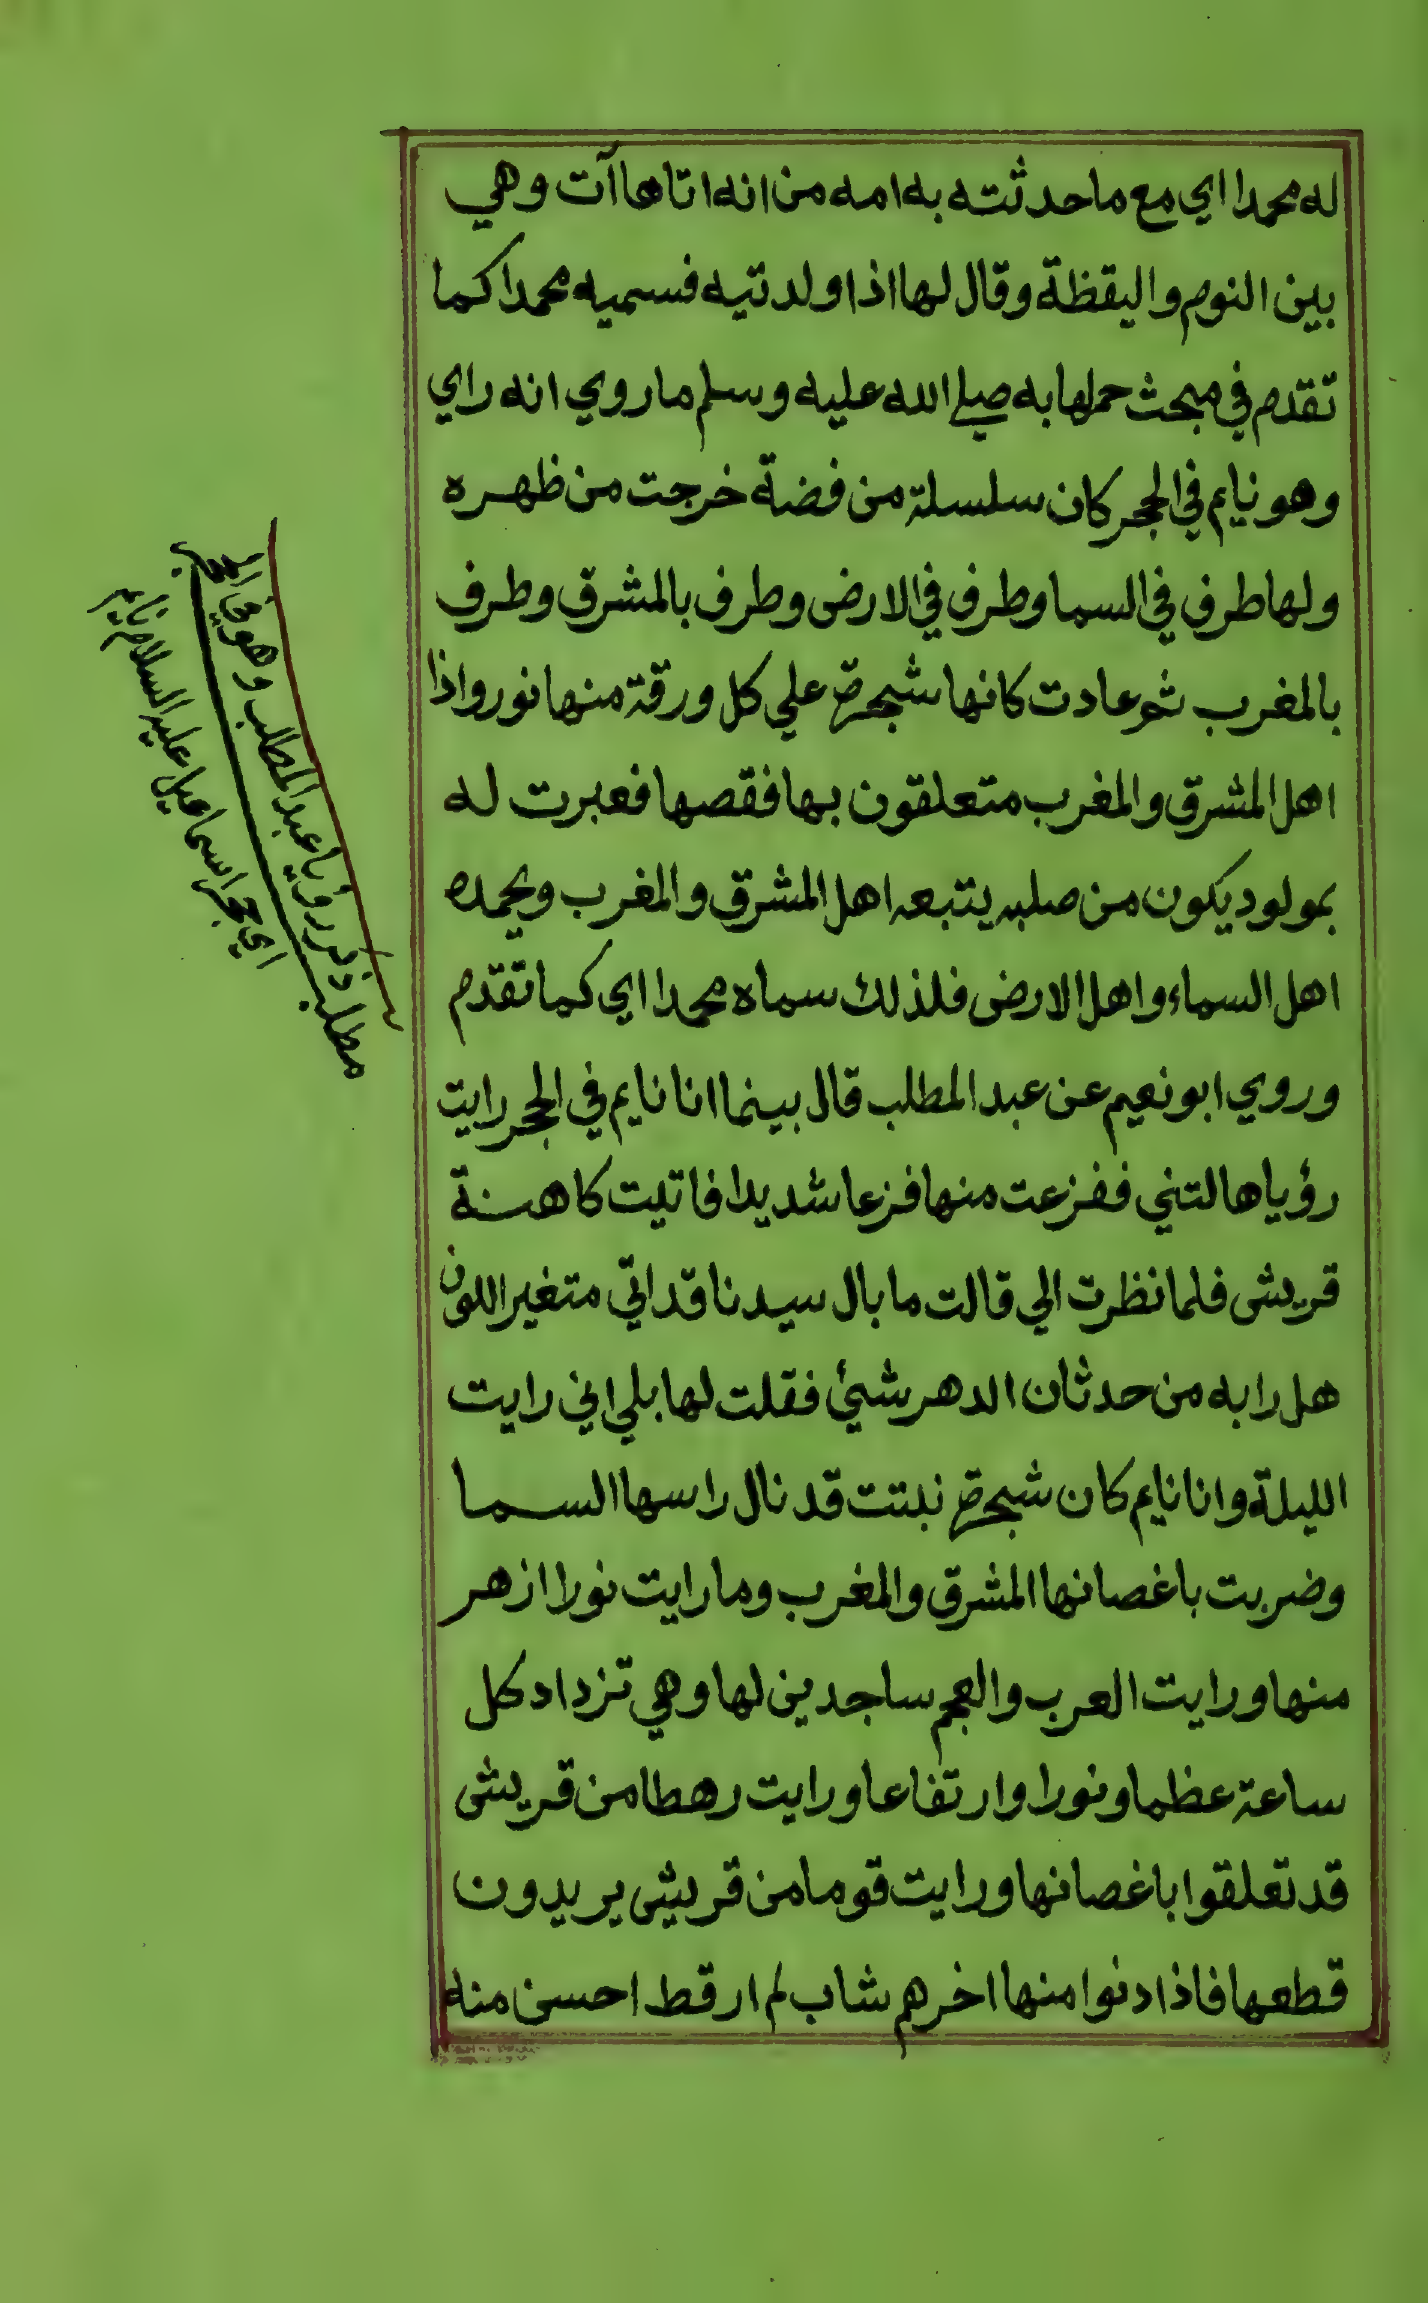 له محمدا اي مع ما حدثته به امه من انه اتاها آت وهي
بين النوم واليقظة وقال لها اذا ولدتيه فسميه محمدا كما
تقدم في مبحث حملها به صلي الله عليه وسلم ما روي انه راي
وهو نايم في الحجر كان سلسلة من فضة خرجت من ظهره
ولها طرف في السما وطرف في الارض وطرف بالمشرق وطرف
بالمغرب ثم عادت كانها شجرة علي كل ورقة منها نور واذا
اهل المشرق والمغرب متعلقون بها فقصها فعبرت له
بمولود يكون من صلبه يتبعه اهل المشرق والمغرب ويحمده
اهل السماء واهل الارض فلذلك سماه محمدا اي كما تقدم
وروي ابو نعيم عن عبد المطلب قال بينما انا نايم في الحجر رايت
رؤيا هالتني ففزعت منها فزعا شديدا فاتيت كاهنة
قريش فلما نظرت الي قالت ما بال سيدنا قد اتي متغير اللون
هل رابه من حدثان الدهر شيئ فقلت لها بلي اني رايت
الليلة وانا نايم كان شجرة نبتت قد نال راسها السما
وضربت باغصانها المشرق والمغرب وما رايت نورا ازهر
منها ورايت العرب والعجم ساجدين لها وهي تزداد كل
ساعة عظما ونورا وارتفاعا ورايت رهطا من قريش
قد تعلقوا باغصانها ورايت قوما من قريش يريدون
قطعها فاذا دنوا منها اخرهم شاب لم ار قط احسن منه
مطلب ذكر رؤيا عبد المطلب وهو في الحجر
اي حجر اسماعيل عليه السلام نايم